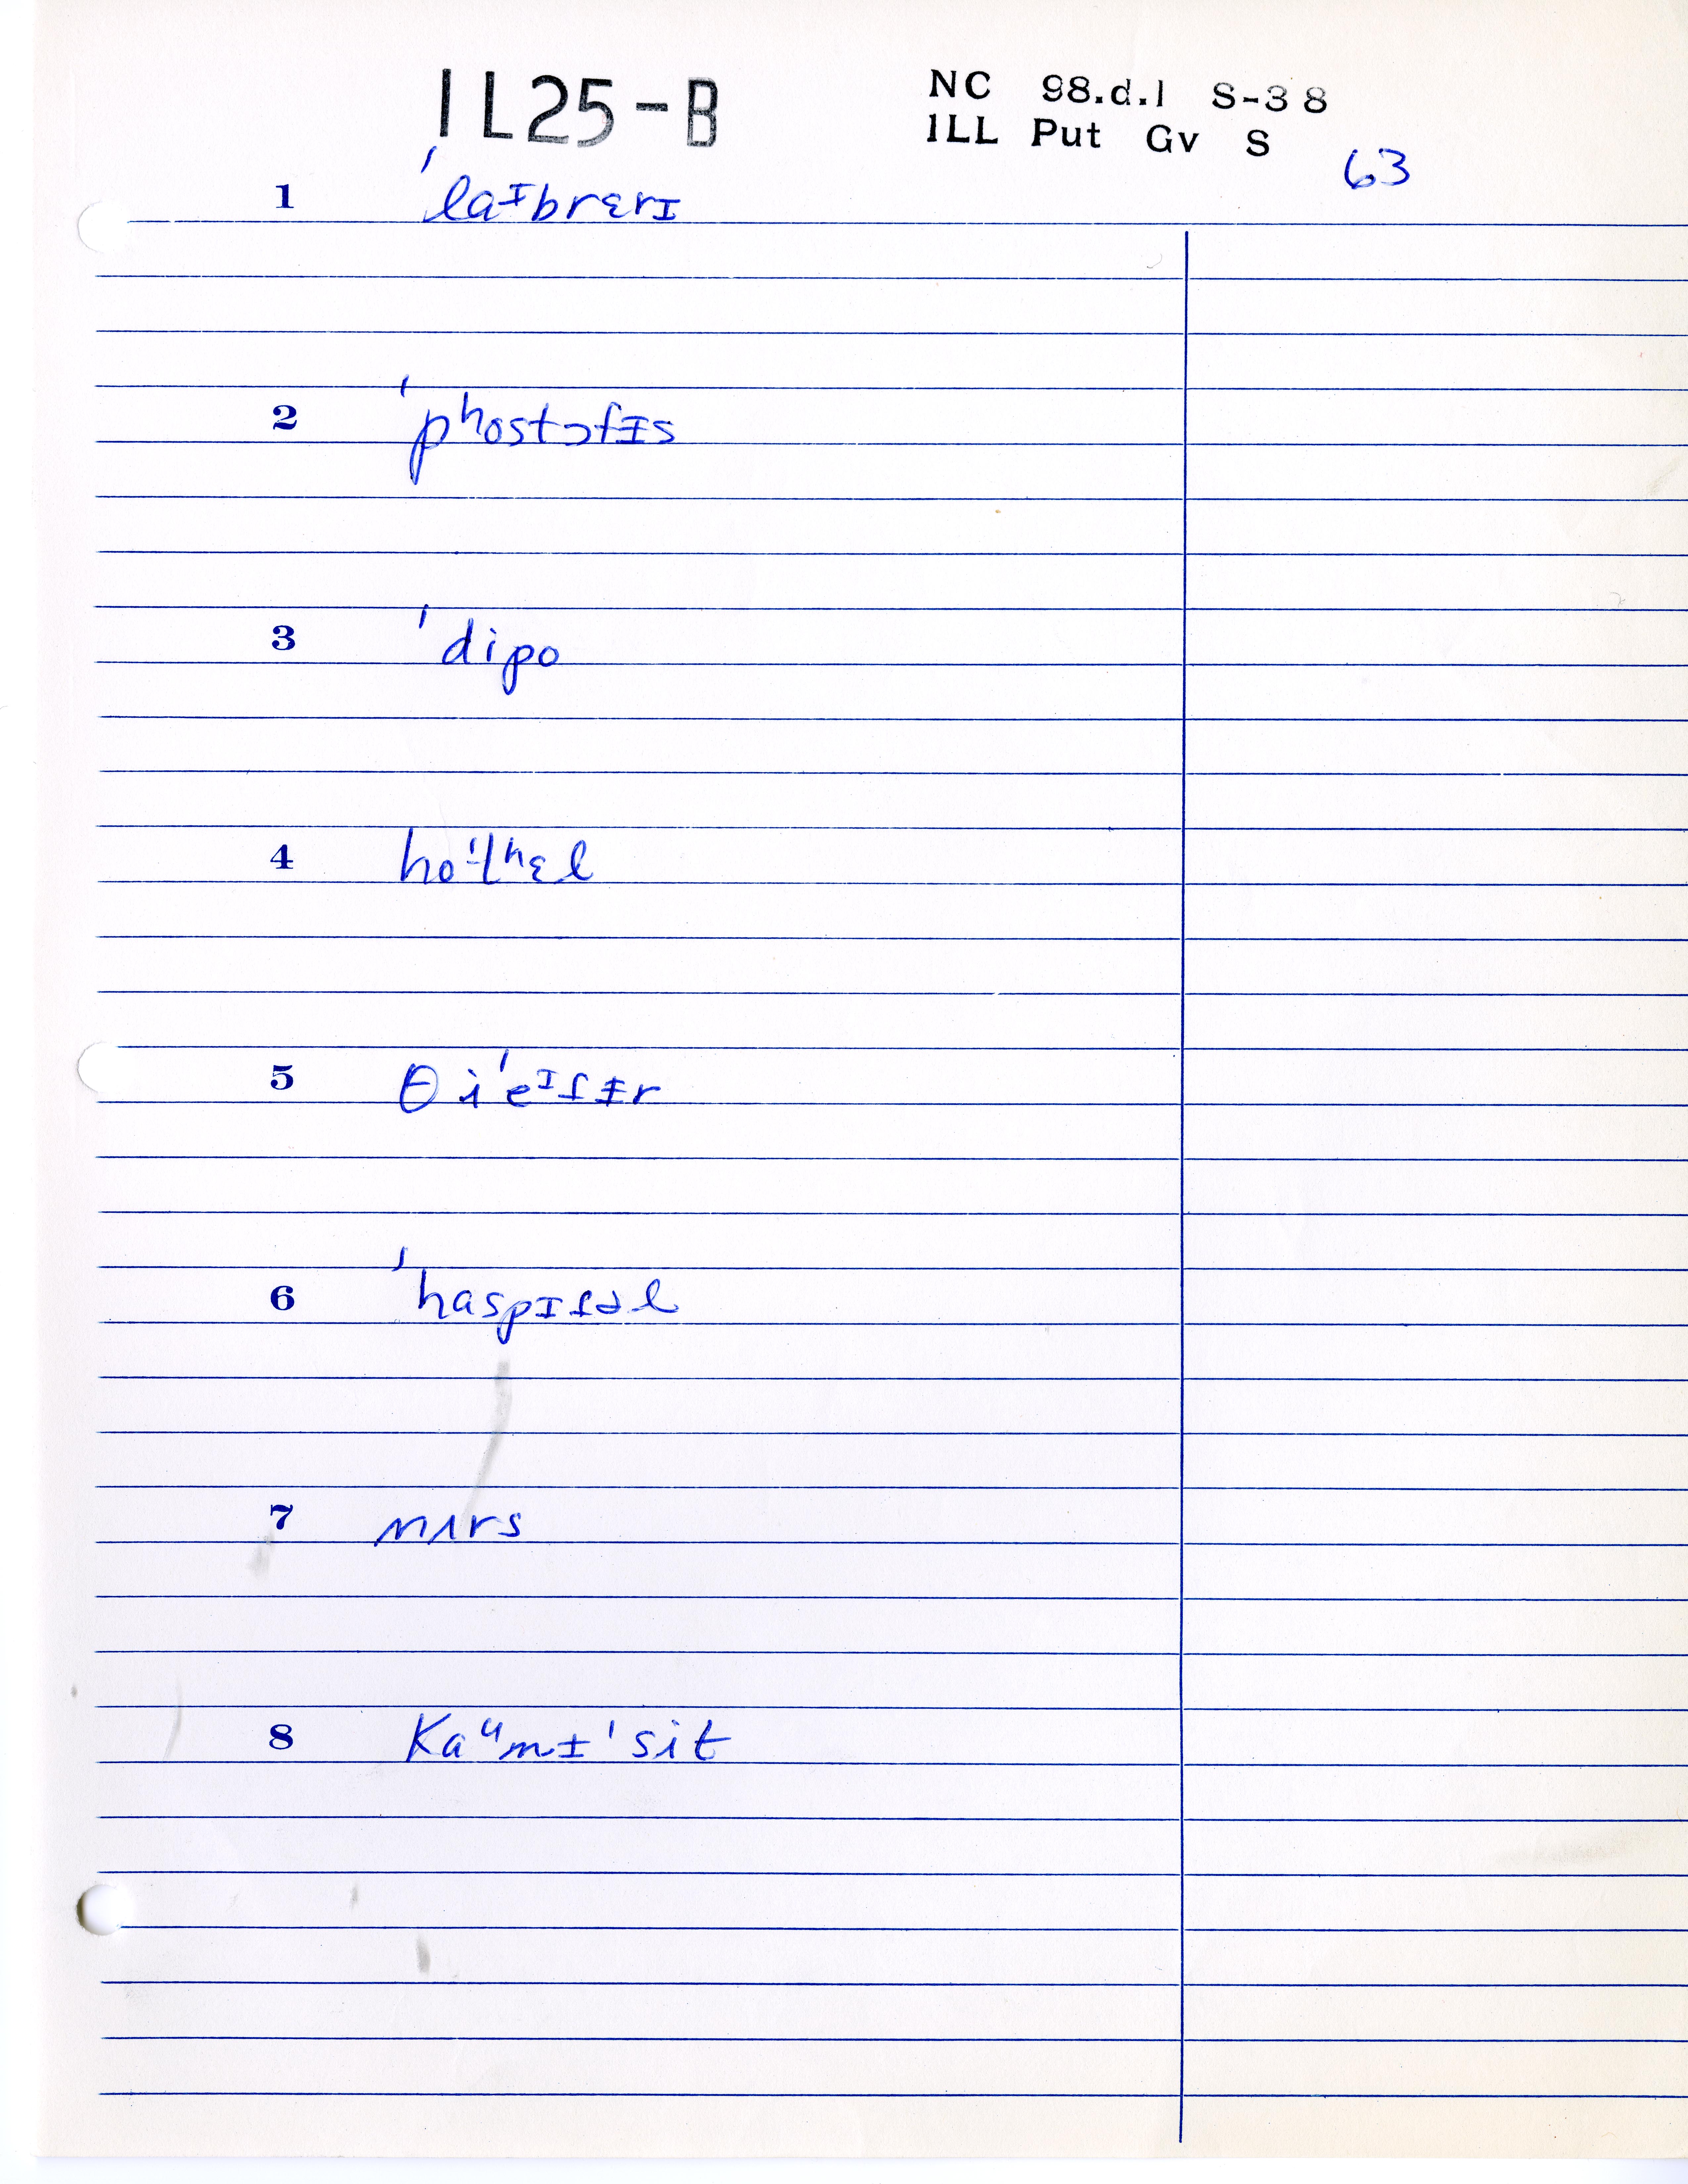 IL25-B
NC 98.d.1 S-38
ILL Put Gv S
63
1 ˈlaᶦbrɛrɪ
2 ˈpʰostɔfɨs
3 ˈdipo
4 hoˈtʰɛl
5 θiˈeᶦɾɨr
6 ˈhaspɪɾəl
7 nɜrs
8 kaᵘnɨˈsit